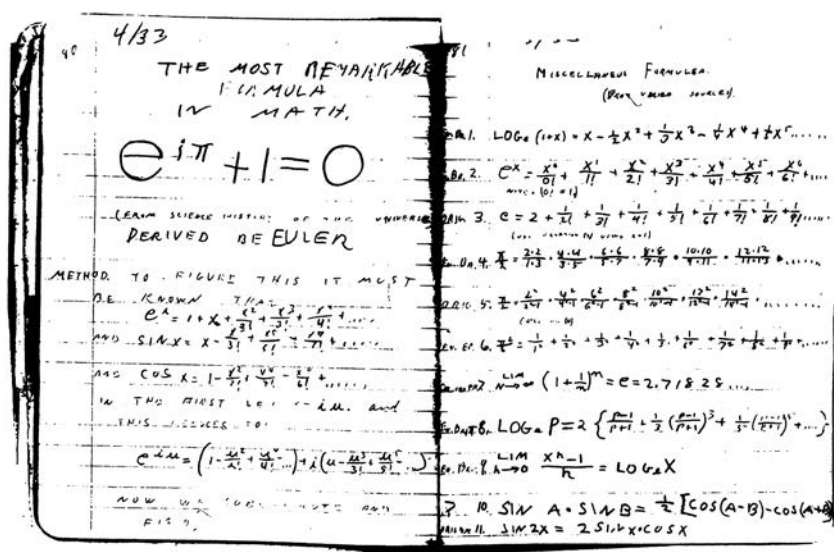 40
4/33
THE MOST REMARKABLE
FORMULA
IN MATH.
e^{iπ} + 1 = 0
(FROM SCIENCE HISTORY OF THE UNIVERSE
DERIVED BE EULER
METHOD. TO FIGURE THIS IT MUST
BE KNOWN THAT
e^x = 1 + x + x²/2! + x³/3! + x⁴/4! + .....
AND SIN x = x - x³/3! + x⁵/5! - x⁷/7! + .....
AND COS x = 1 - x²/2! + x⁴/4! - x⁶/6! + .....
IN THE FIRST LET iu. and
THIS TO:
e^{iu} = (1 - u²/2! + u⁴/4! - ...) + i(u - u³/3! + u⁵/5! - ...)
NOW WE SUBSTITUTE AND
FIND,
MISCELLANEOUS FORMULEA.
(FROM SOURCES)
1. LOGe (1+x) = x - ½x² + ⅓x³ - ¼x⁴ + ⅕x⁵ .....
2. e^x = x⁰/0! + x¹/1! + x²/2! + x³/3! + x⁴/4! + x⁵/5! + x⁶/6! + ....
NOTE: (0! = 1)
3. e = 2 + 1/2! + 1/3! + 1/4! + 1/5! + 1/6! + 1/7! + 1/8! + 1/9! ....
4. π/2 = 2·2/1·3 · 4·4/3·5 · 6·6/5·7 · 8·8/7·9 · 10·10/9·11 · 12·12/11·13 ......
5. π/2 = 2²/2²-1 · 4²/4²-1 · 6²/6²-1 · 8²/8²-1 · 10²/10²-1 · 12²/12²-1 · 14²/14²-1 .......
6. = 1/1² + 1/2² + 1/3² + 1/4² + 1/5² + 1/6² + 1/7² + 1/8² + .....
7. LIM N→∞ (1 + 1/m)^m = e = 2.71828...
8. LOGe P = 2 {P-1/P+1 + 1/3 (P-1/P+1)³ + 1/5 (P-1/P+1)⁵ + ...}
LIM h→0 x^h - 1/h = LOGe X
10. SIN A · SIN B = ½ [COS(A-B) - COS(A+B)]
11. SIN 2X = 2 SIN X · COS X